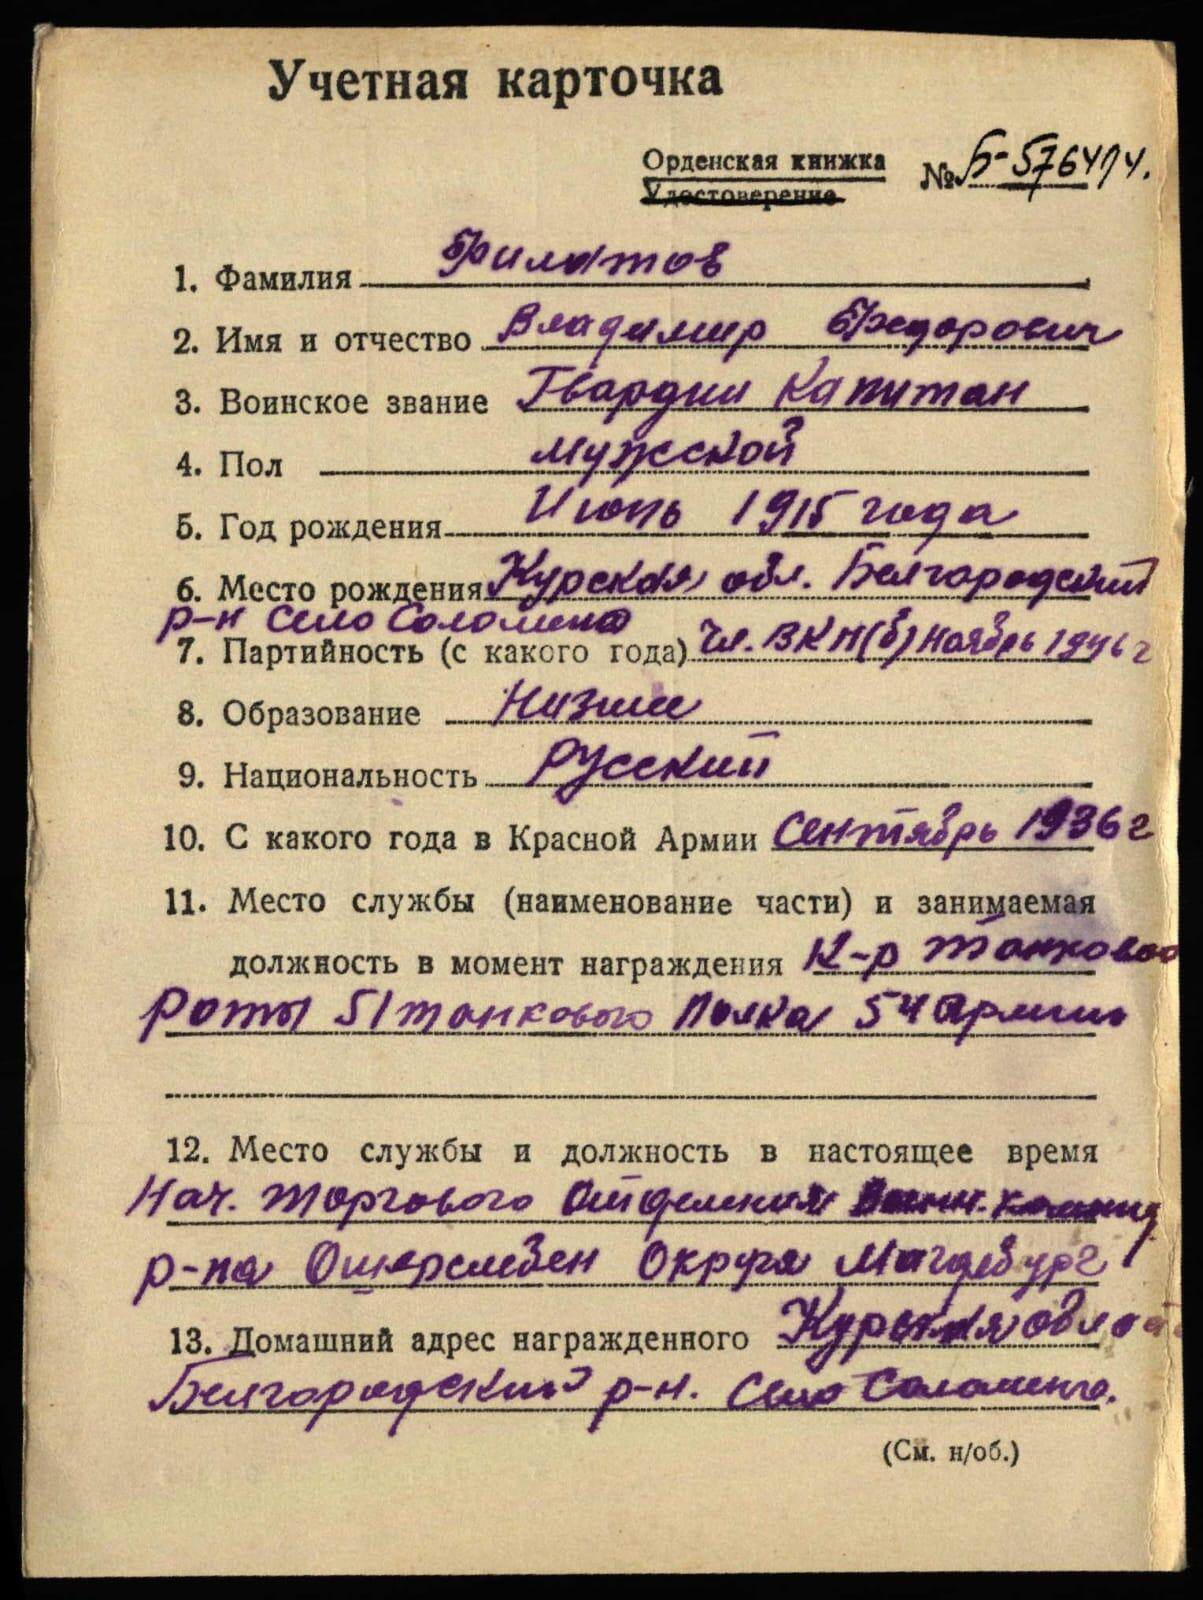 Учетная карточка
Орденская книжка
Удостоверение
№ Б-576474.
1. Фамилия Филатов
2. Имя и отчество Владимир Федорович
3. Воинское звание Гвардии Капитан
4. Пол мужской
5. Год рождения Июнь 1915 года
6. Место рождения Курская обл. Белгородский
р-н Село Соломено
7. Партийность (с какого года) Чл. ВКП(б) Ноябрь 1946 г
8. Образование Низшее
9. Национальность Русский
10. С какого года в Красной Армии Сентябрь 1936 г
11. Место службы (наименование части) и занимаемая
должность в момент награждения К-р Танковой
Роты 51 танкового Полка 54 Армии
12. Место службы и должность в настоящее время
Нач. Торгового Отделения Воен. коменд
р-на Ошерслебен Округа Магдебург
13. Домашний адрес награжденного Курская област
Белгородский р-н. Село Соломено.
(См. н/об.)